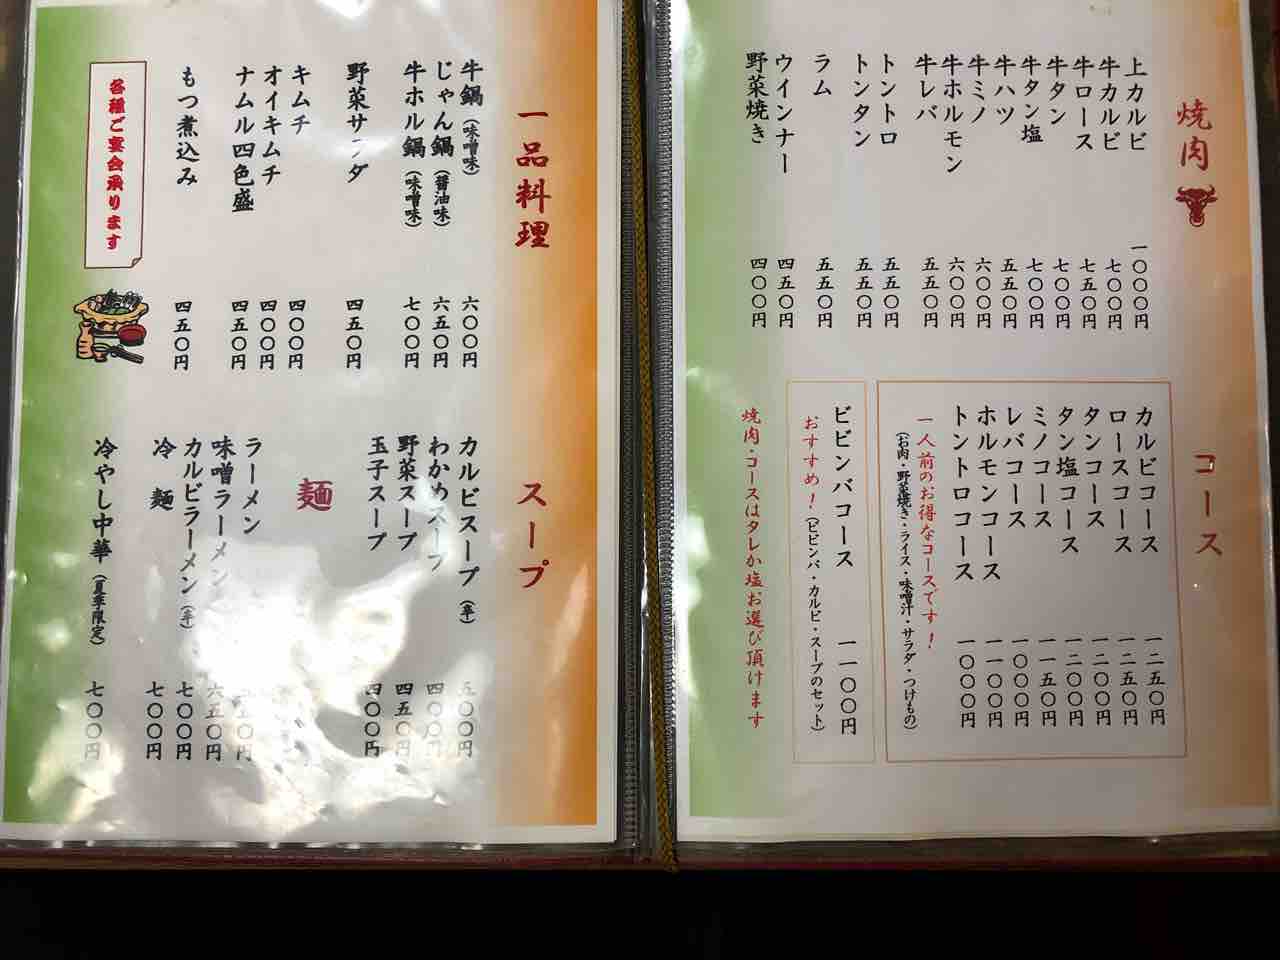 焼肉
上カルビ 一〇〇〇円
牛カルビ 七〇〇円
牛ロース 七五〇円
牛タン 七〇〇円
牛タン塩 七〇〇円
牛ハツ 五五〇円
牛ミノ 六〇〇円
牛ホルモン 六〇〇円
牛レバ 五五〇円
トントロ 五五〇円
トンタン 五五〇円
ラム 五五〇円
ウインナー 四五〇円
野菜焼き 四〇〇円
コース
カルビコース 一二五〇円
ロースコース 一二五〇円
タンコース 一二〇〇円
タン塩コース 一二〇〇円
ミノコース 一一五〇円
レバコース 一〇〇〇円
ホルモンコース 一一〇〇円
トントロコース 一〇〇〇円
一人前のお得なコースです!
(お肉・野菜焼き・ライス・味噌汁・サラダ・つけもの)
ビビンバコース 一一〇〇円
おすすめ!(ビビンバ・カルビ・スープのセット)
焼肉・コースはタレか塩お選び頂けます
一品料理
牛鍋(味噌味) 六〇〇円
じゃん鍋(醤油味) 六五〇円
牛ホル鍋(味噌味) 七〇〇円
野菜サラダ 四五〇円
キムチ 四〇〇円
オイキムチ 四〇〇円
ナムル四色盛 四五〇円
もつ煮込み 四五〇円
各種ご宴会承ります
スープ
カルビスープ(辛) 五〇〇円
わかめスープ 四〇〇円
野菜スープ 四五〇円
玉子スープ 四〇〇円
麺
ラーメン 〇円
味噌ラーメン 六五〇円
カルビラーメン(辛) 七〇〇円
冷麺 七〇〇円
冷やし中華(夏季限定) 七〇〇円